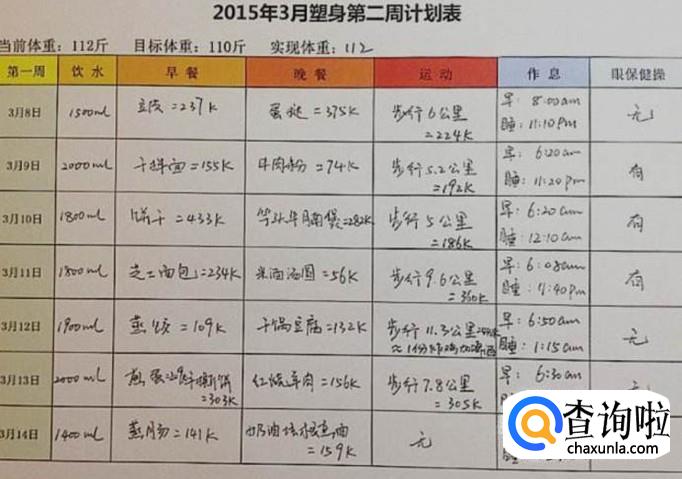 2015年3月塑身第二周计划表
当前体重：112斤 目标体重：110斤 实现体重：112
第一周 饮水 早餐 晚餐 运动 作息 眼保健操
3月8日 1500ml 豆皮=237K 蛋挞=375K 步行6公里 早：8:00am 无
=224K 睡：11:10pm
3月9日 2000ml 干拌面=155K 牛肉粉=74K 步行5.2公里 早：6:20am 有
=192K 睡：11:20pm
3月10日 1800ml 饼干=433K 牛腩煲=282K 步行5公里 早：6:20am 有
=186K 睡：12:10am
3月11日 1800ml 芝士面包=234K 米酒汤圆=56K 步行9.6公里 早：6:08am 有
=360K 睡：11:40pm
3月12日 1900ml 蒸饺=109K 干锅豆腐=132K 步行11.3公里 早：6:50am 无
≈1份炸鸡加啤酒 睡：1:15am
3月13日 2000ml 煎蛋 手撕饼 红烧羊肉=156K 步行7.8公里 早：6:30am
=303K =305K
3月14日 1400ml 蒸肠=141K 奶油 无
=159K
查询啦
chaxunla.com